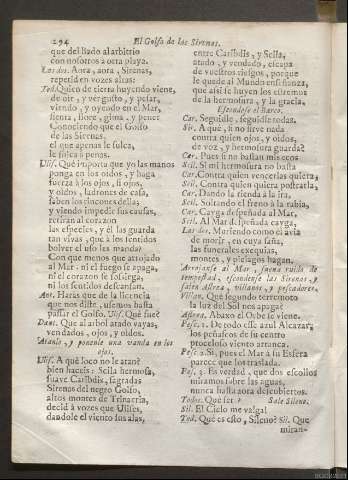 294 El Golfo de las Sirenas.
que del hado al arbitrio
con nosotros a otra playa.
Las dos. Aora, aora, Sirenas,
repetid en vozes altas:
Tod. Quien de cierta huyendo viene,
de oir, y ver gusto, y pesar,
viendo, y oyendo en el Mar,
sienta, llore, gima, y pene:
Conociendo que el Golfo
de las Sirenas,
el que apenas le sulca,
le sulca à penas.
Ulis. Què importa que yo las manos
ponga en los oidos, y haga
fuerça à los ojos, si ojos,
y oidos, ladrones de casa,
saben los rincones della;
y viendo impedir sus causas,
retiran al coraçon
las especies, y èl las guarda
tan vivas, que à los sentidos
bolver el uso les manda?
Con que menos que arrojado
al Mar: ni el fuego se apaga,
ni el coraçon se sossiega,
ni los sentidos descansan.
Ant. Haràs que de la licencia
que nos diste, usemos hasta
passar el Golfo. Ulis. Què fue?
Dant. Que al arbol atado vayas,
vendados, ojos, y oidos.
Atanle, y ponenle una vanda en los
ojos.
Ulis. A què loco no le atan?
bien haceis: Scila hermosa,
suave Caribdis, sagradas
Sirenas del negro Golfo,
altos montes de Trinacria,
decid à vozes que Ulises,
dandole el viento sus alas,
entre Caribdis, y Scila,
atado, y vendado, escapa
de vuestros riesgos, porque
le quede al Mundo enseñança,
que assi se huyen los estremos
de la hermosura, y la gracia.
Escondese el Barco.
Car. Seguidle, seguidle todas.
Sir. A què, si no sirve nada
contra quien ojos, y oidos,
de voz, y hermosura guarda?
Car. Pues si no bastan mis ecos
Scil. Si mi hermosura no basta
Car. Contra quien vencerlas quiera,
Scil. Contra quien quiera postrarla,
Car. Dando la rienda à la ira,
Scil. Soltando el freno à la rabia,
Car. Cayga despeñada al Mar,
Scil. Al Mar despeñada cayga,
Las dos. Muriendo como el avia
de morir, en cuya saña,
las funerales exequias,
montes, y pielagos hagan.
Arrojanse al Mar, suena ruido de
tempestad, escondense las Sirenas, y
salen Astrea, villanos, y pescadores.
Villan. Què segundo terremoto
la luz del Sol nos apaga?
Astrea. Abaxo el Orbe se viene.
Pesc. 1. De todo esse azul Alcazar
los peñascos de su centro
proceloso viento arranca.
Pesc. 2. Si, pues el Mar à su Esfera
parece que los traslada.
Pes. 3. Es verdad, que dos escollos
miramos sobre las aguas,
nunca hasta aora descubiertos.
Todos. Què serà? Sale Sileno.
Sil. El Cielo me valga!
Tod. Què es esto, Sileno? Sil. Que
miran-